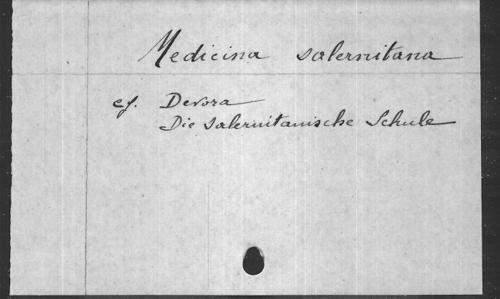 Medicina salernitana
cf. Devora
Die salernitanische Schule